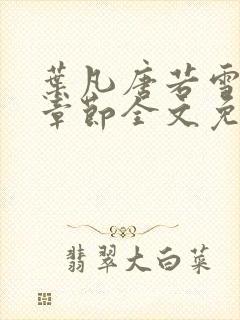 葉凡唐若雪
章節全文免
翡翠大白菜